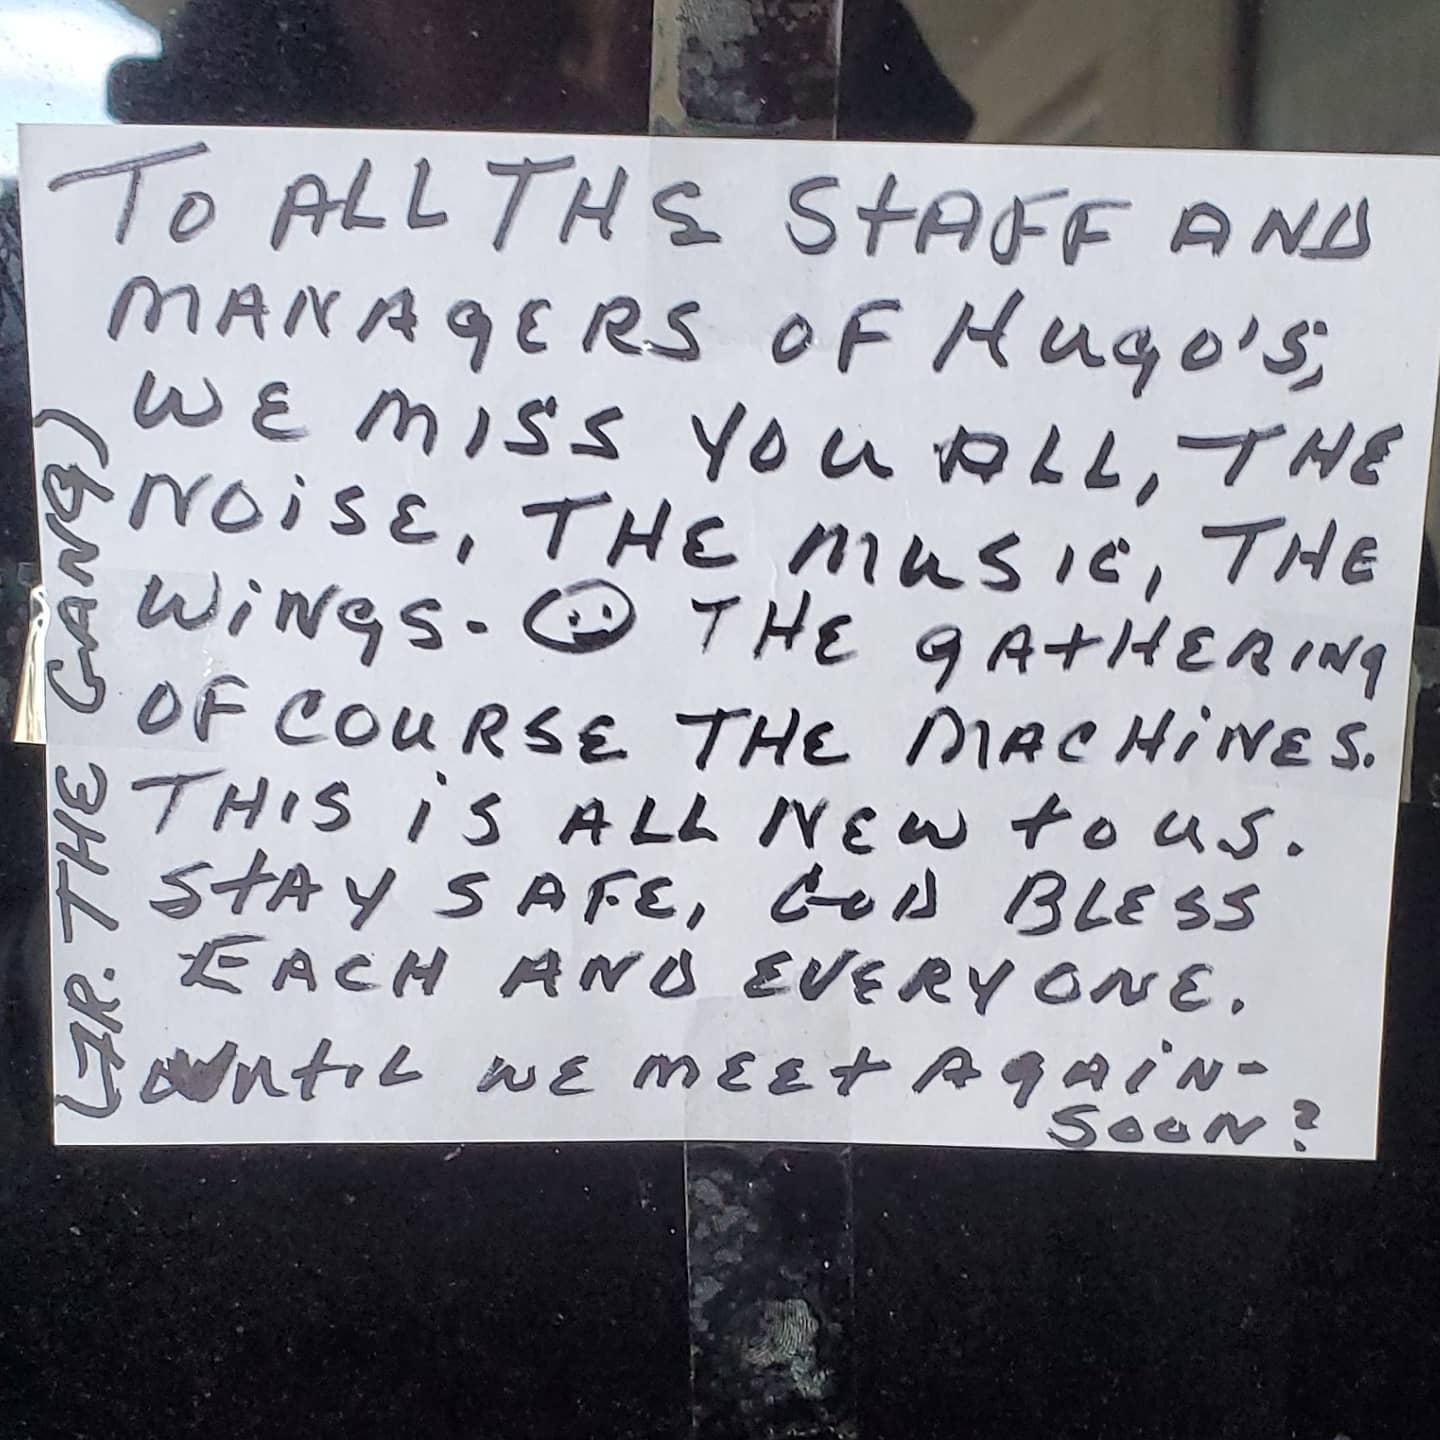 TO ALL THE StAFF AND
MANAgERS OF Hugo's,
WE MISS YOU ALL, THE
NOiSE, THE MUSIC, THE
WiNgS - THE gAtHERINg
OF COURSE THE MACHiNES.
THIS iS ALL NEW to US.
StAY SAFE, GOD BLESS
EACH AND EVERYONE.
UNtiL WE MEEt AgAiN -
SOON?
THE GANg)